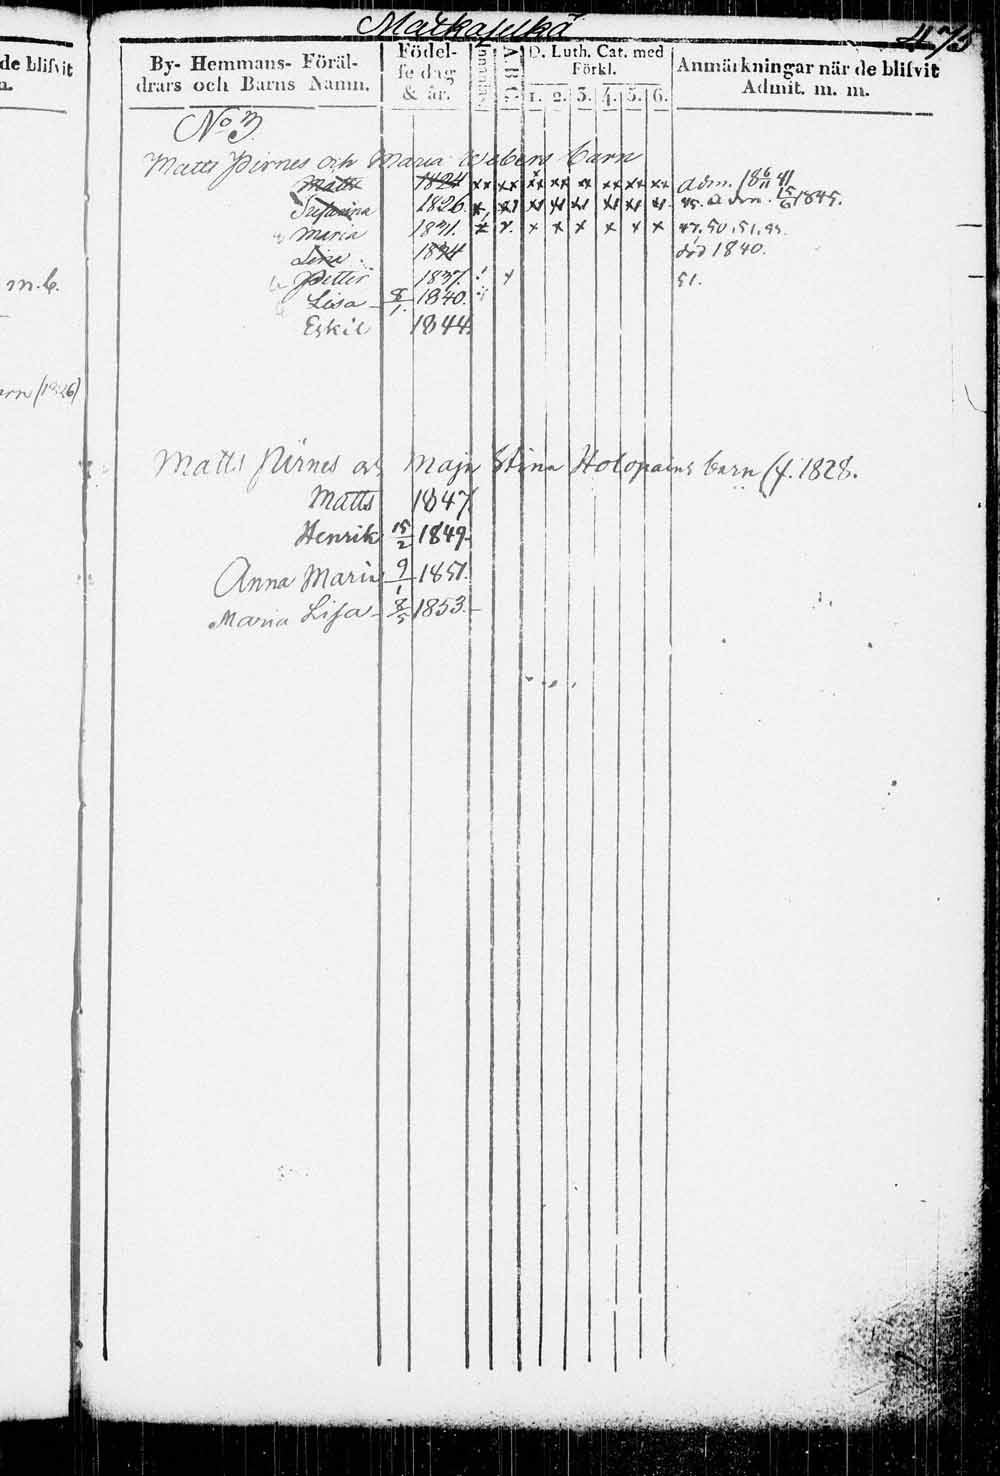 Matkaselkä
475
By- Hemmans- Föräl-
drars och Barns Namn.
Födel-
se dag
& år.
Innanläs.
A B C
D. Luth. Cat. med
Förkl.
1. 2. 3. 4. 5. 6.
Anmärkningar när de blifvit
Admit. m. m.
de blifvit
No 3
Matts Pirnes och Maria Webers barn
Matts 1824 xx xx xx xx xx xx xx xx adm. 18 6/11 41
1826 45. adm. 15/6 1845.
Maria 1831. x x x x x x x 47. 50. 51.
Lina 1834 död 1840.
Petter 1837. 51.
Lisa 8/1. 1840.
Eskil 1844.
m. b.
Matts Pirnes och Maja Stina Holopains barn (f. 1828.
Matts 1847
Henrik 15/2 1849.
Anna Maria 9/1 1851.
Maria Lisa 8/5 1853.